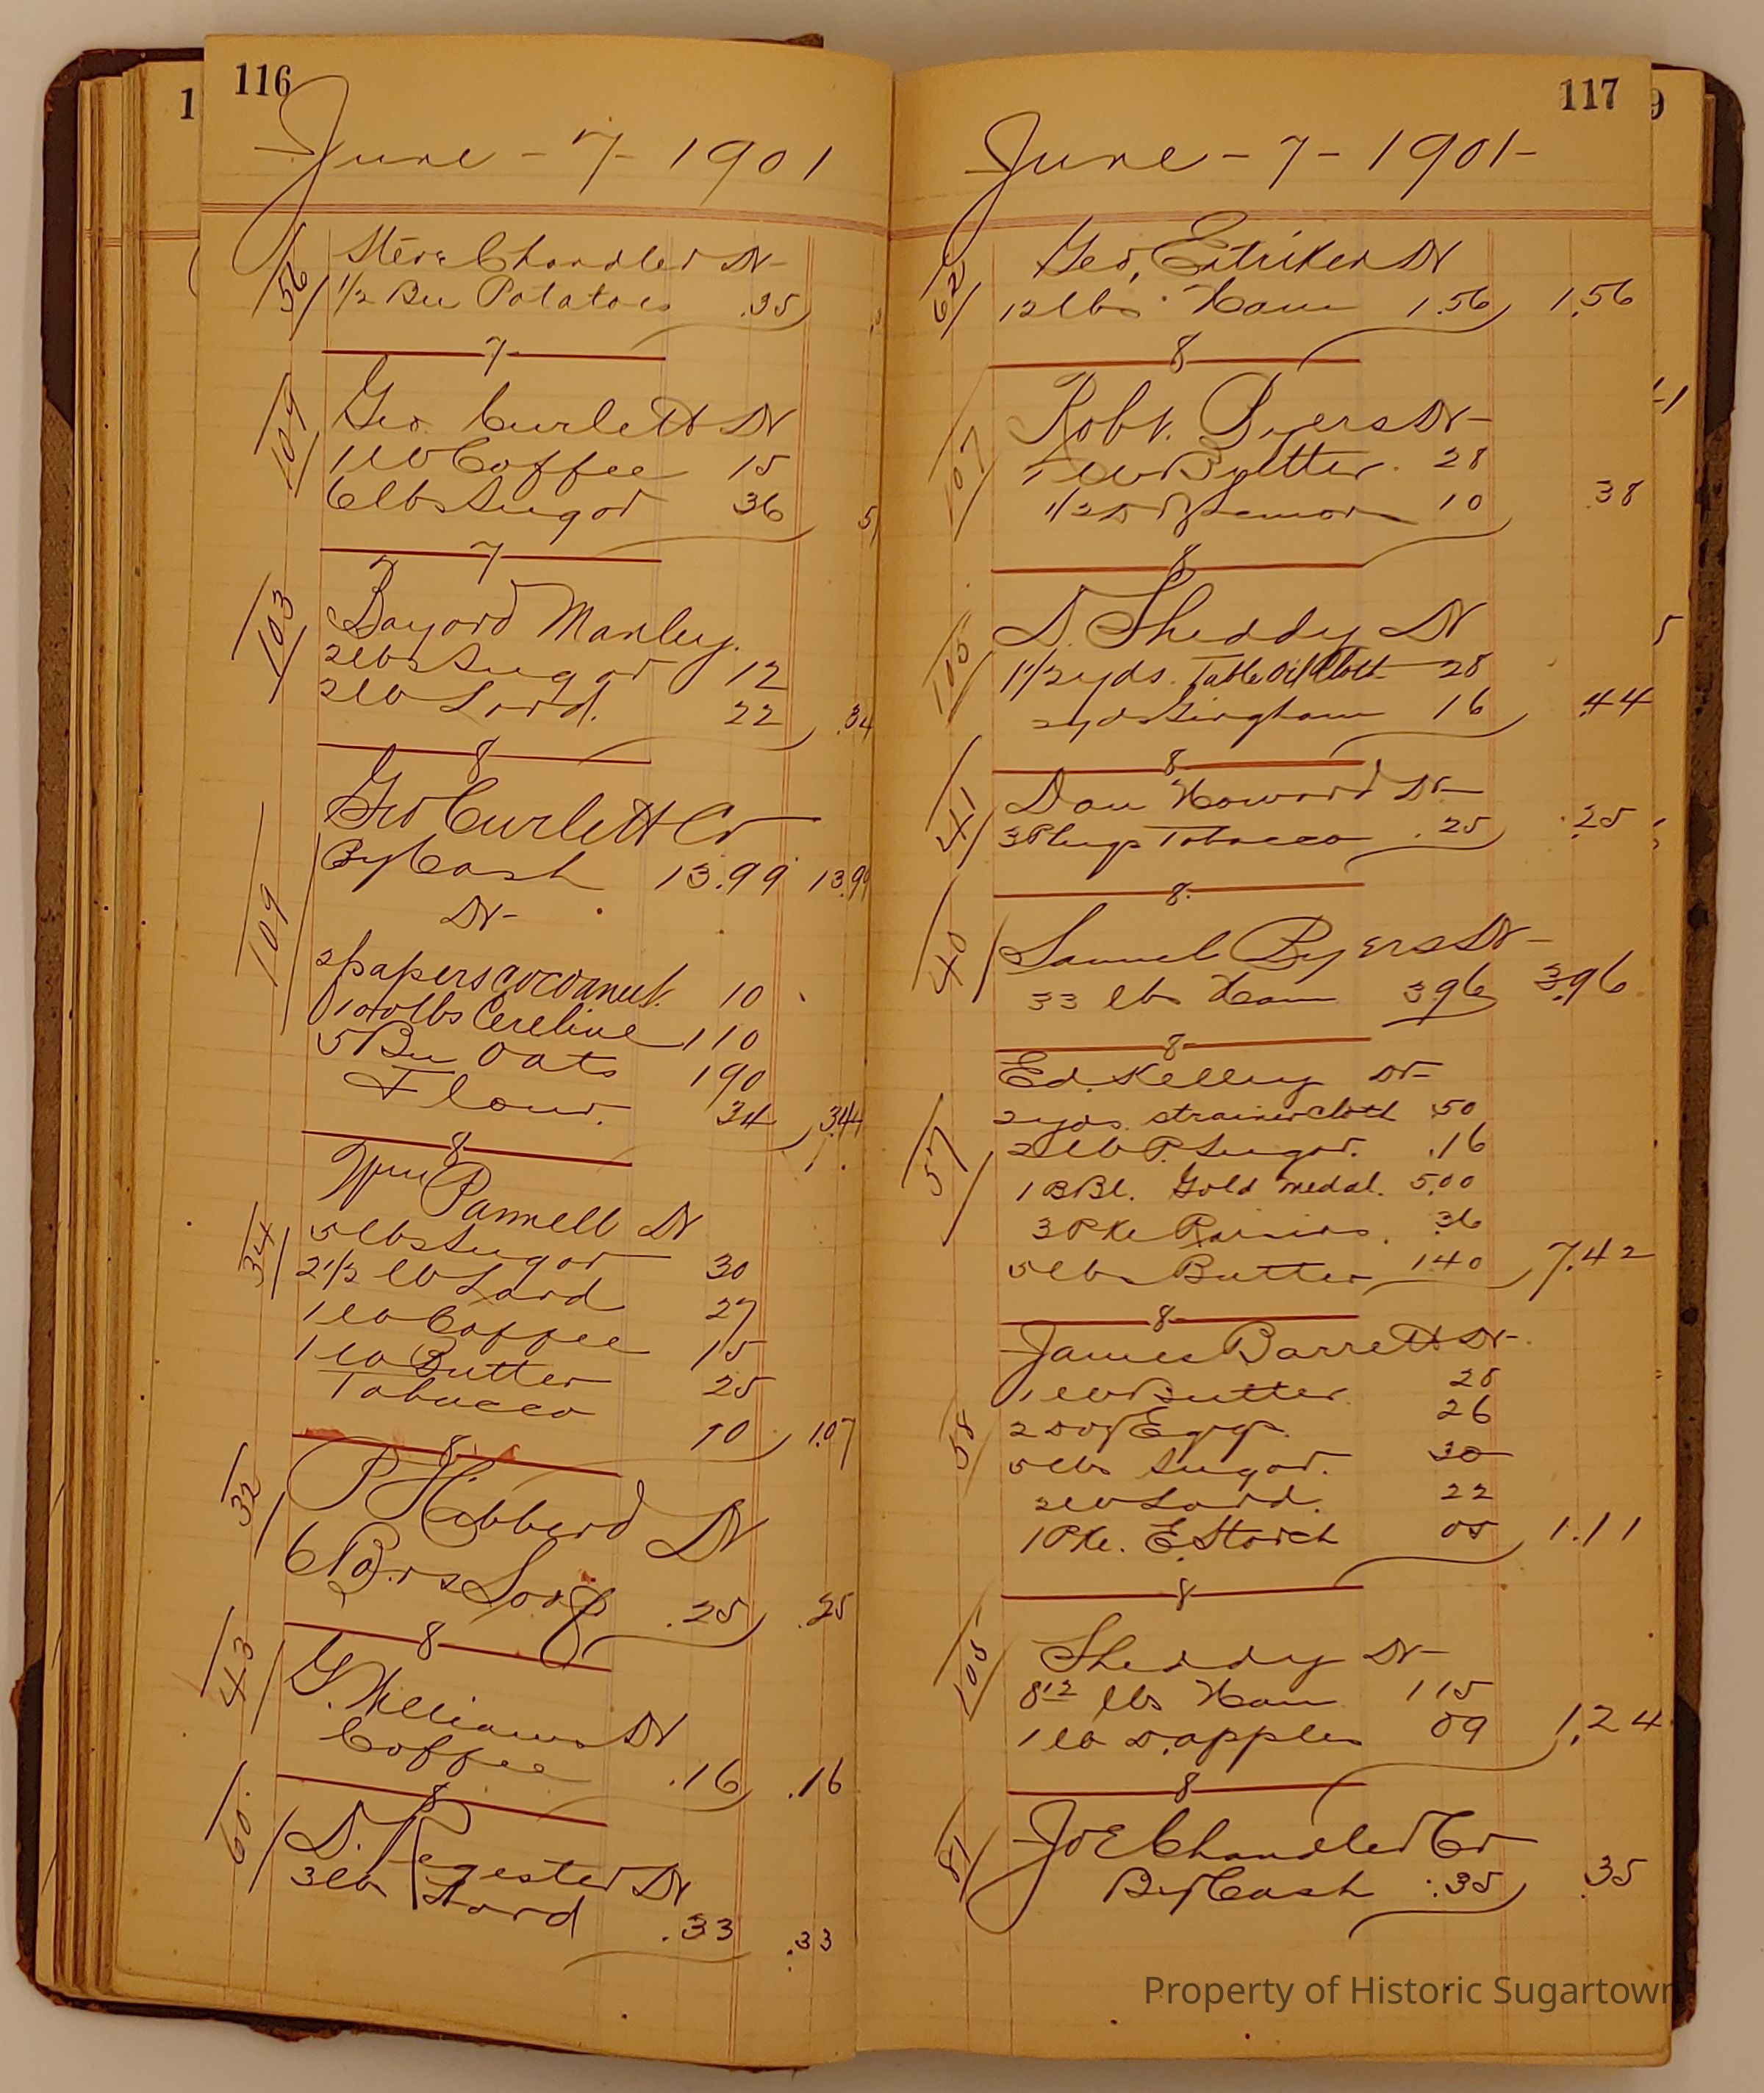 116
June - 7 - 1901
56 Steve Chandler Dr
1/2 Bu Potatoes .35
7
109 Geo. Curlett Dr
1 lb Coffee 15
6 lbs Sugar 36 51
7
103 Bayard Manley.
2 lbs Sugar 12
2 lb Lard. 22 .34
8
Geo Curlett Cr
By Cash 13.99 13.99
109 Dr
2 papers cocoanut. 10
100 lbs Cereline 110
5 Bu Oats 190
Flour. 34 3.44
8
Wm Pannell Dr
34 5 lbs Sugar 30
2 1/2 lb Lard 27
1 lb Coffee 15
1 lb Butter 25
Tobacco 10 1.07
8
32 P Hibberd Dr
6 Brs Soap .25 .25
8
43 G. Williams Dr
Coffee .16 .16
8
60 D. Regester Dr
3 lb Lard .33 .33
117
June - 7 - 1901 -
62 Geo, Entriken Dr
12 lbs Ham 1.56 1.56
8
107 Robt. Byers Dr
1 lb Butter. 28
1/2 Doz Lemons 10 .38
8
105 D. Sheddy Dr
1 1/2 yds. Table Oil Cloth 28
2 yds Gingham 16 .44
8
41 Dan Howard Dr
3 Plugs Tobacco .25 .25
8
40 Samuel Byers Dr
33 lbs Ham 3.96 3.96
8
Ed. Kelley Dr
2 yds. strainer cloth .50
57 2 lb P. Sugar. .16
1 BBl. Gold medal. 5.00
3 PKe Raisins. .36
5 lbs Butter 1.40 7.42
8
James Barrett Dr
1 lb Butter. 28
58 2 doz Eggs. 26
5 lbs Sugar. 30
2 lb Lard. 22
1 PKe. E. Starch 05 1.11
8
105 Sheddy Dr
8 12 lbs Ham 115
1 lb D. apples 09 1.24
8
81 Joe Chandler Cr
By Cash .35 .35
Property of Historic Sugartown